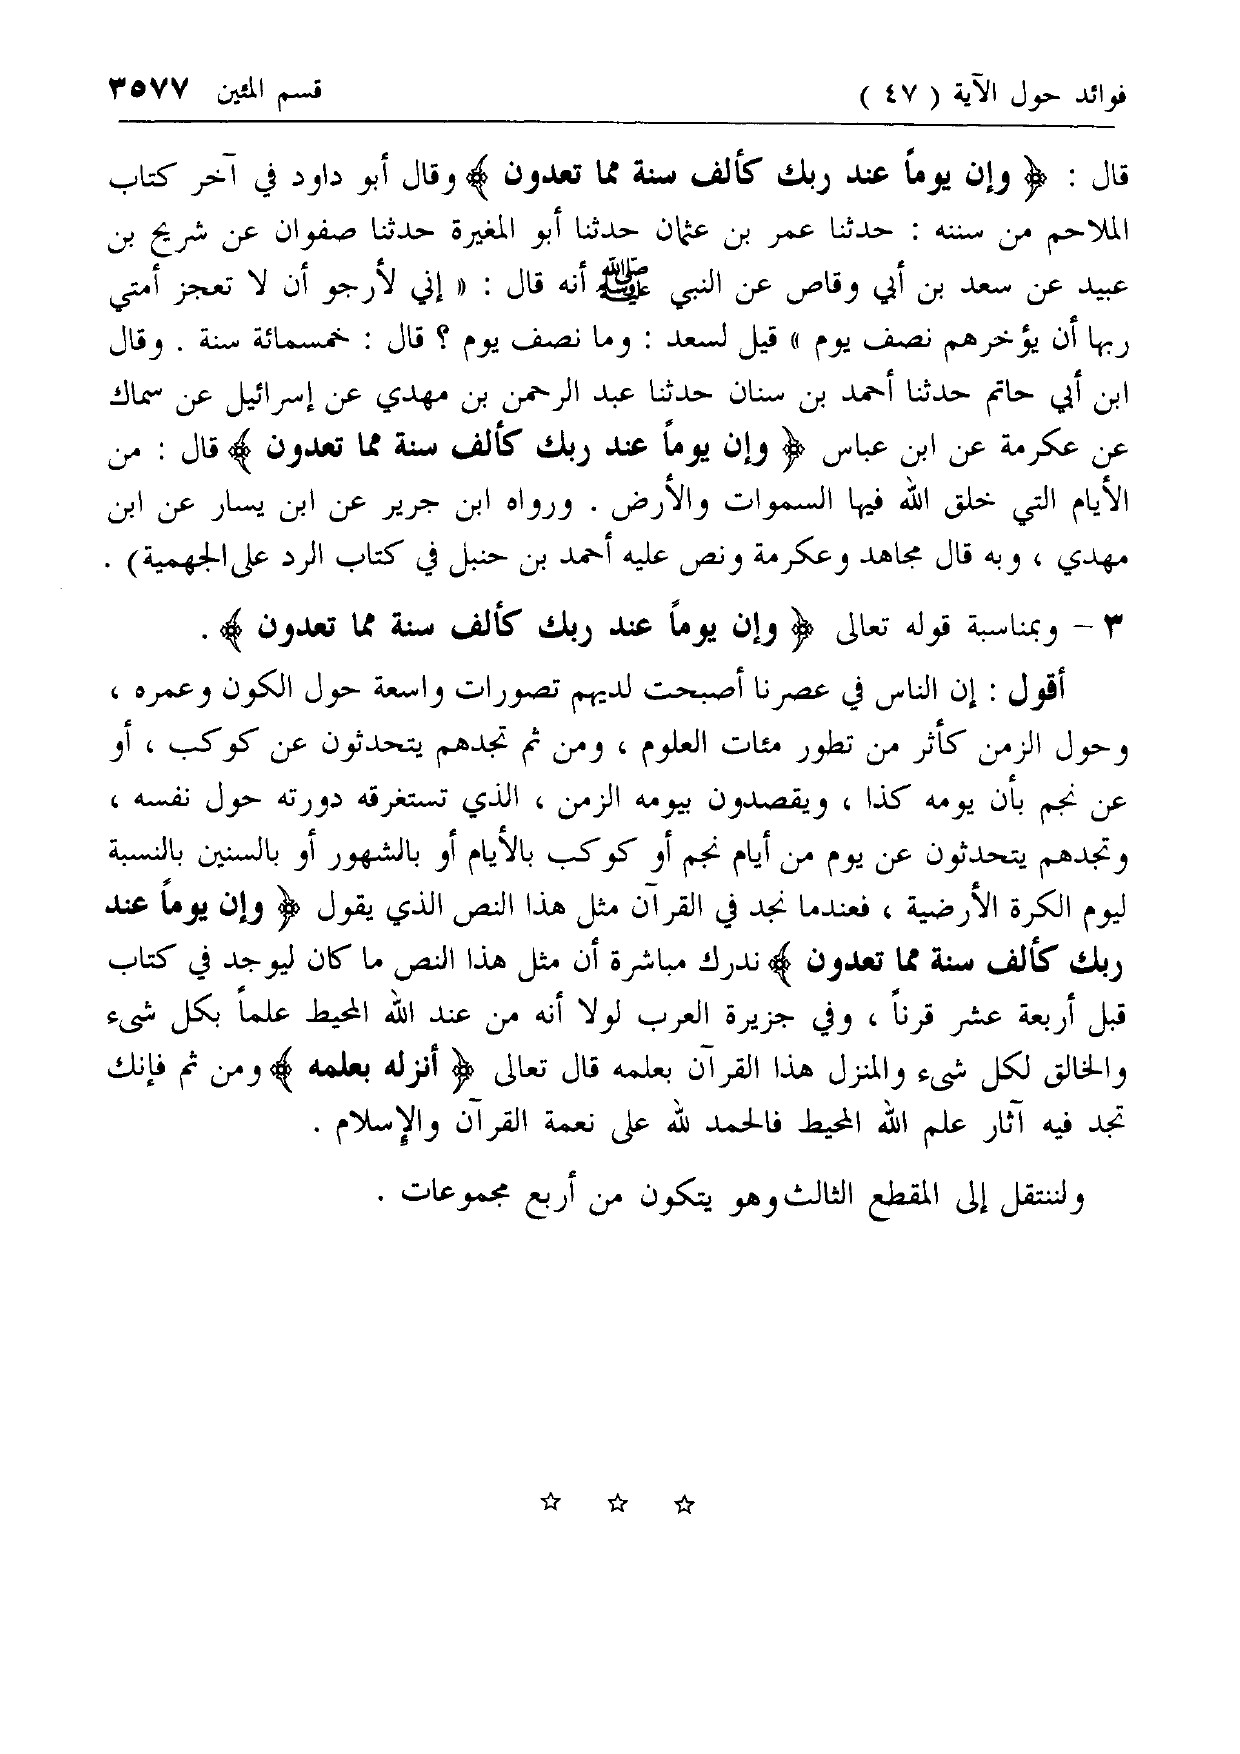 فوائد حول الآية ( ٤٧ ) قسم المئين ٣٥٧٧
قال : ﴿ وإن يوماً عند ربك كألف سنة مما تعدون ﴾ وقال أبو داود في آخر كتاب
الملاحم من سننه : حدثنا عمر بن عثمان حدثنا أبو المغيرة حدثنا صفوان عن شريح بن
عبيد عن سعد بن أبي وقاص عن النبي ﷺ أنه قال : « إني لأرجو أن لا تعجز أمتي
ربها أن يؤخرهم نصف يوم » قيل لسعد : وما نصف يوم ؟ قال : خمسمائة سنة . وقال
ابن أبي حاتم حدثنا أحمد بن سنان حدثنا عبد الرحمن بن مهدي عن إسرائيل عن سماك
عن عكرمة عن ابن عباس ﴿ وإن يوماً عند ربك كألف سنة مما تعدون ﴾ قال : من
الأيام التي خلق الله فيها السموات والأرض . ورواه ابن جرير عن ابن يسار عن ابن
مهدي ، وبه قال مجاهد وعكرمة ونص عليه أحمد بن حنبل في كتاب الرد على الجهمية) .
٣ – وبمناسبة قوله تعالى ﴿ وإن يوماً عند ربك كألف سنة مما تعدون ﴾ .
أقول : إن الناس في عصرنا أصبحت لديهم تصورات واسعة حول الكون وعمره ،
وحول الزمن كأثر من تطور مئات العلوم ، ومن ثم تجدهم يتحدثون عن كوكب ، أو
عن نجم بأن يومه كذا ، ويقصدون بيومه الزمن ، الذي تستغرقه دورته حول نفسه ،
وتجدهم يتحدثون عن يوم من أيام نجم أو كوكب بالأيام أو بالشهور أو بالسنين بالنسبة
ليوم الكرة الأرضية ، فعندما نجد في القرآن مثل هذا النص الذي يقول ﴿ وإن يوماً عند
ربك كألف سنة مما تعدون ﴾ ندرك مباشرة أن مثل هذا النص ما كان ليوجد في كتاب
قبل أربعة عشر قرناً ، وفي جزيرة العرب لولا أنه من عند الله المحيط علماً بكل شىء
والخالق لكل شىء والمنزل هذا القرآن بعلمه قال تعالى ﴿ أنزله بعلمه ﴾ ومن ثم فإنك
تجد فيه آثار علم الله المحيط فالحمد لله على نعمة القرآن والإسلام .
ولننتقل إلى المقطع الثالث وهو يتكون من أربع مجموعات .
☆ ☆ ☆